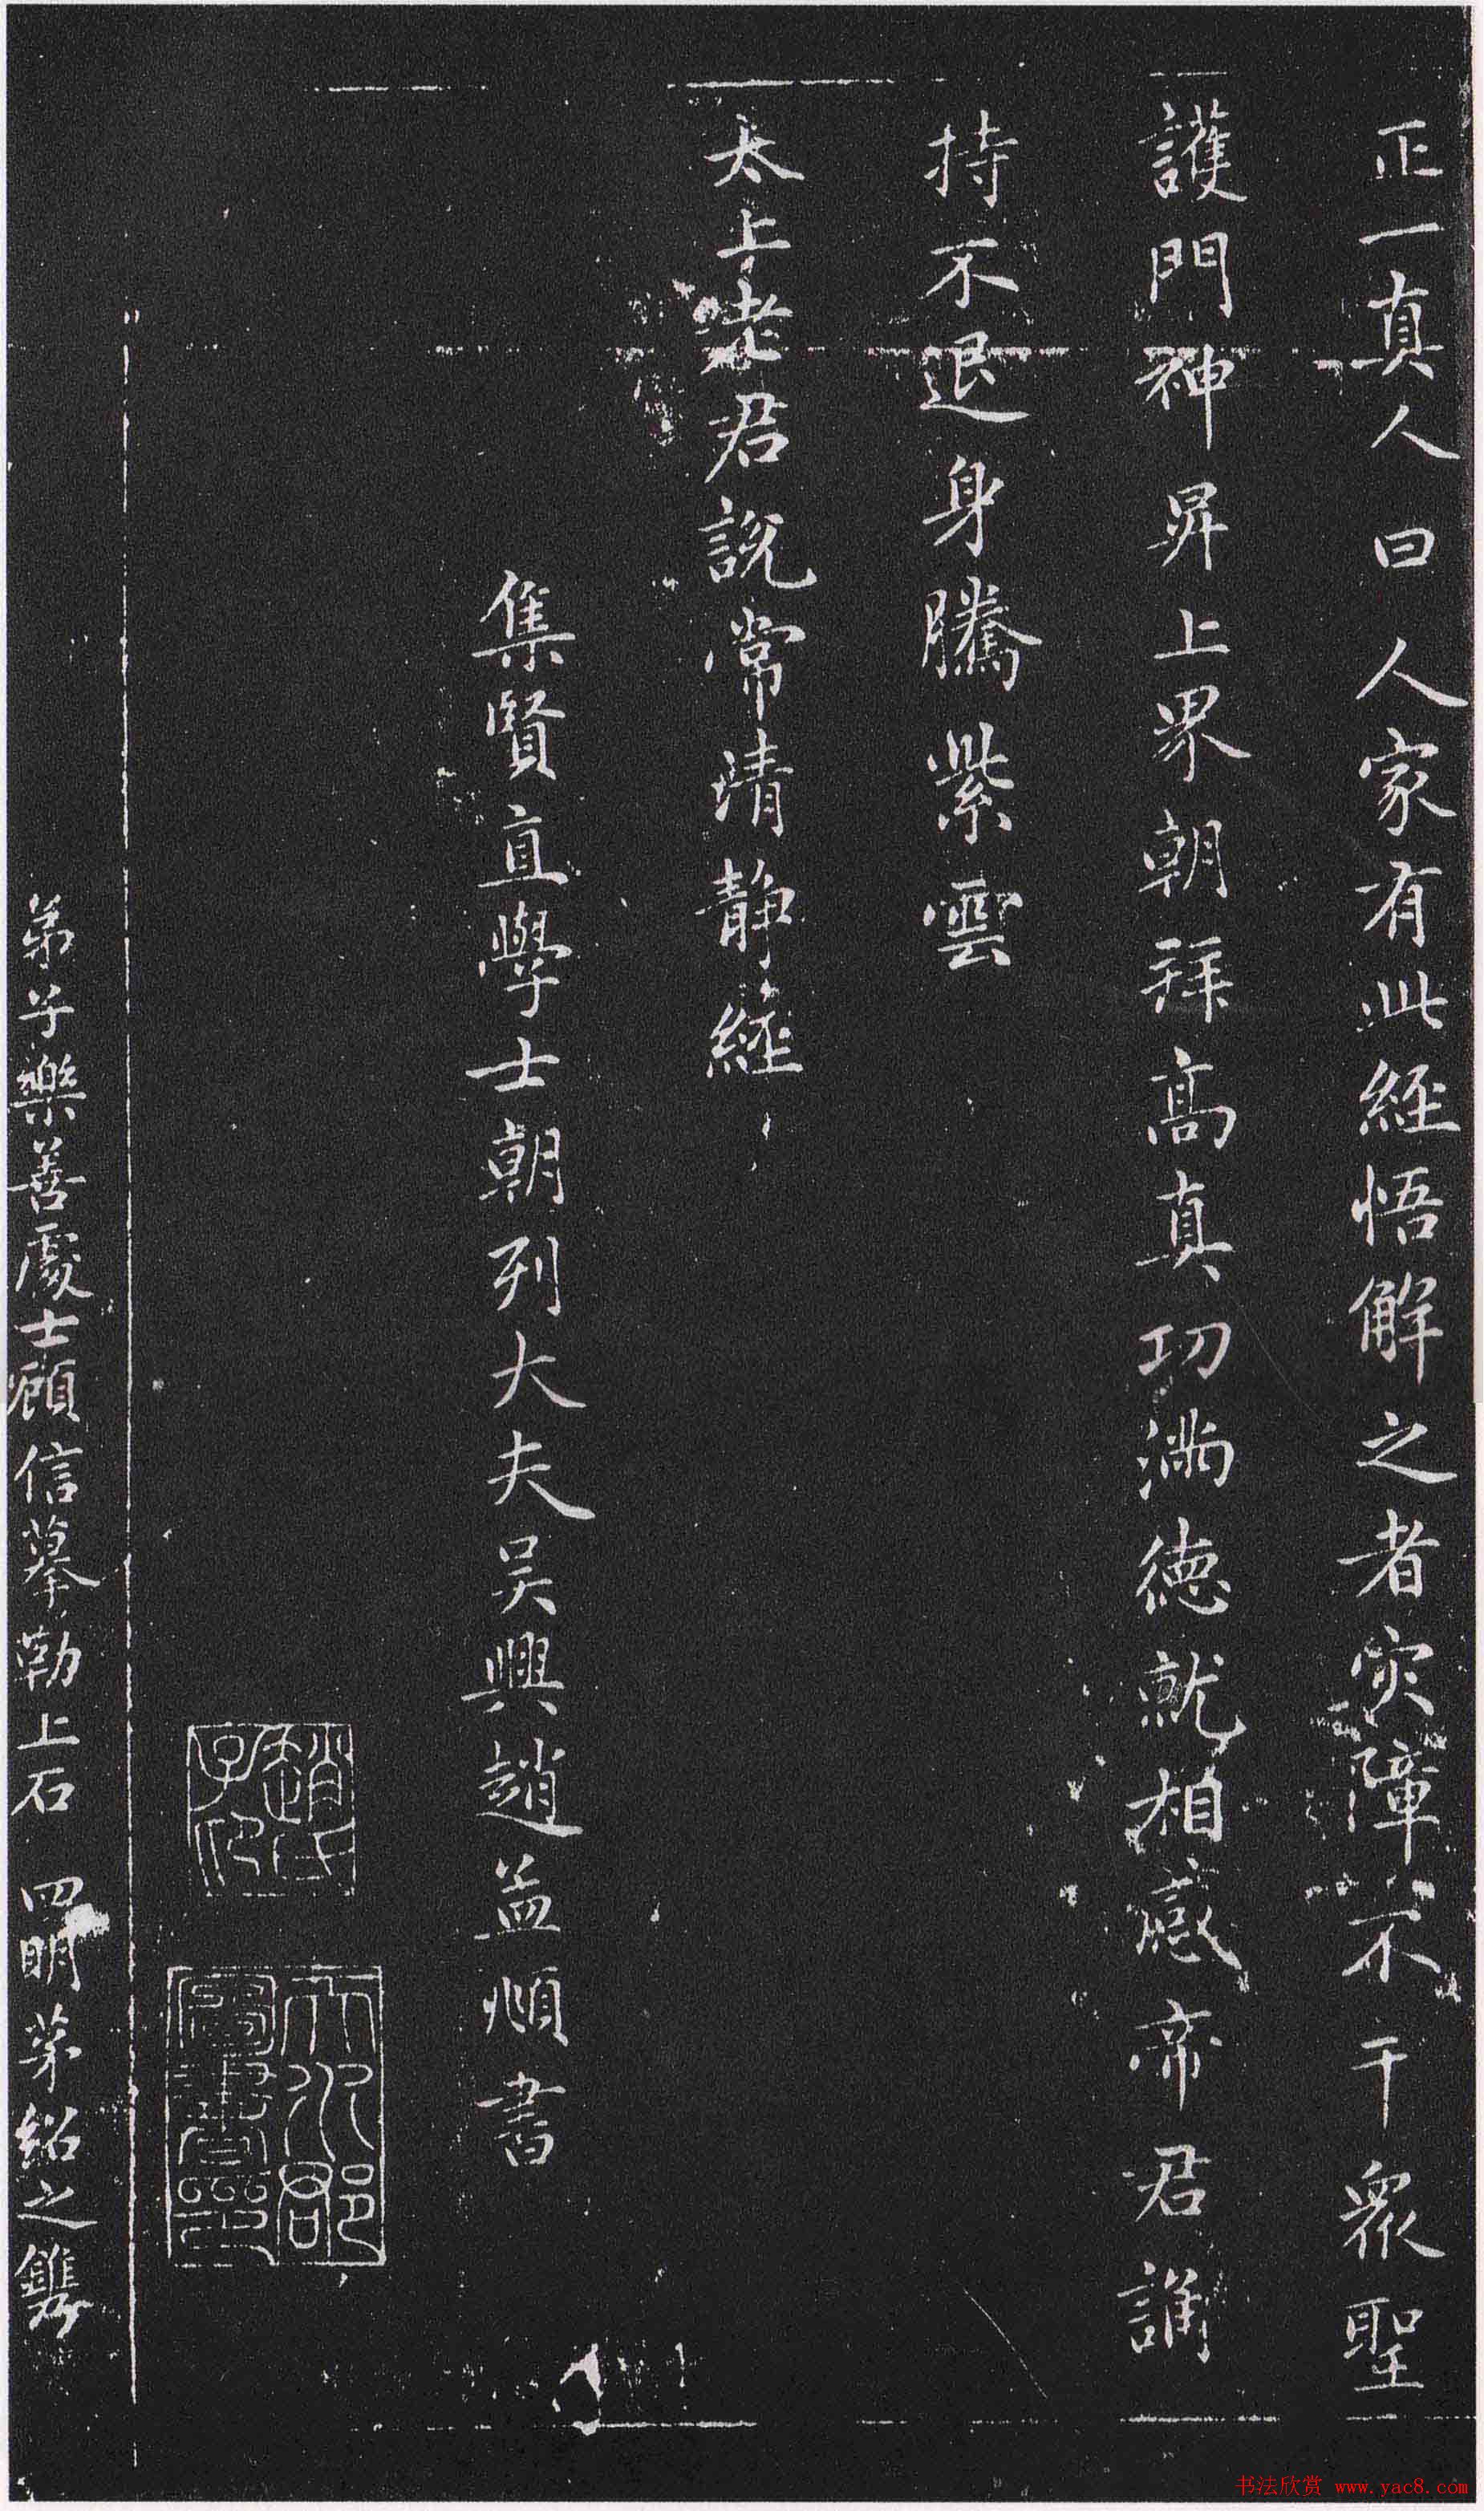 正一真人曰人家有此經悟解之者灾障不干衆聖
護門神昇上界朝拜高真功滿德就相感帝君誦
持不退身騰紫雲
太上老君說常清静經
集賢直學士朝列大夫吴興趙孟頫書
趙氏子昂
天水郡圖書印
弟子樂善處士顧信摹勒上石 四明茅紹之鐫
书法欣赏 www.yac8.com